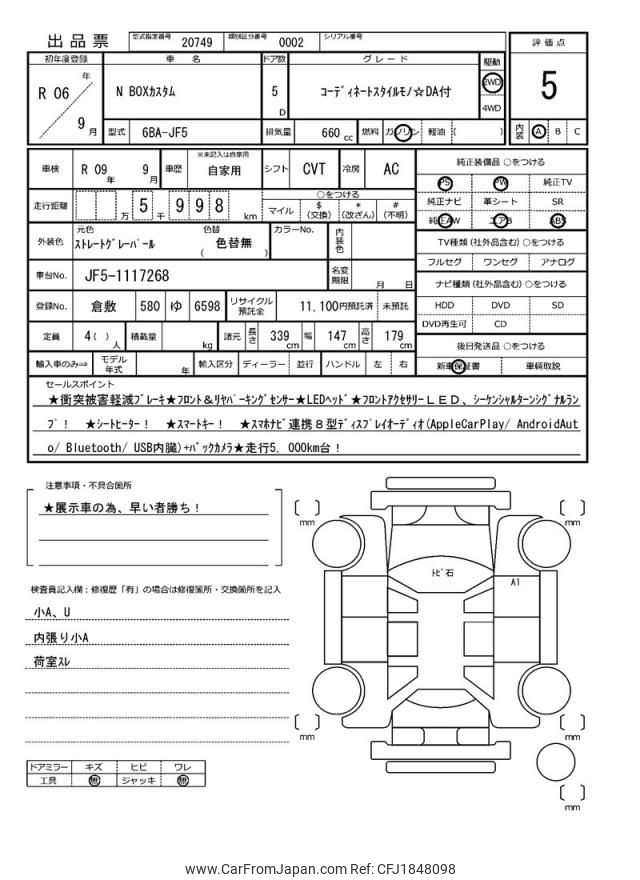 出品票 型式指定番号 20749 類別区分番号 0002 シリアル番号
評価点
5
内装 A B C
初年度登録 車名 ドア数 グレード 駆動
R 06 年 9 月 N BOXカスタム 5 D コーディネートスタイルモノ☆DA付 2WD 4WD
型式 6BA-JF5 排気量 660 cc 燃料 ガソリン 軽油 ( )
車検 R 09 年 9 月 車歴 ※未記入は自家用 自家用 シフト CVT 冷房 AC
走行距離 万 5 千 9 9 8 km ○をつける マイル $(交換) *(改ざん) #(不明)
外装色 元色 ストレートグレーパール 色替 ( 色替無 ) カラーNo. 内装色
車台No. JF5-1117268 名変期限 月 日
登録No. 倉敷 580 ゆ 6598 リサイクル預託金 11,100円預託済 未預託
定員 4( ) 人 積載量 kg 諸元 長さ 339 cm 幅 147 cm 高さ 179 cm
輸入車のみ⇒ モデル年式 年 輸入区分 ディーラー 並行 ハンドル 左 右
純正装備品 ○をつける
PS PW 純正TV
純正ナビ 革シート SR
純正AW エアB ABS
TV種類(社外品含む)○をつける
フルセグ ワンセグ アナログ
ナビ種類(社外品含む)○をつける
HDD DVD SD
DVD再生可 CD
後日発送品 ○をつける
新車保証書 車輌取説
セールスポイント
★衝突被害軽減ブレーキ★フロント&リヤパーキングセンサー★LEDヘッド★フロントアクセサリーLED、シーケンシャルターンシグナルラン
プ! ★シートヒーター! ★スマートキー! ★スマホナビ連携8型ディスプレイオーディオ(AppleCarPlay/ AndroidAut
o/ Bluetooth/ USB内臓)+バックカメラ★走行5,000km台!
注意事項・不具合箇所
★展示車の為、早い者勝ち!
検査員記入欄:修復歴「有」の場合は修復箇所・交換箇所を記入
小A、U
内張り小A
荷室スレ
ドアミラー キズ ヒビ ワレ
工具 無 ジャッキ 無
mm
mm
トビ石
A1
mm
mm
mm
www.CarFromJapan.com Ref: CFJ1848098